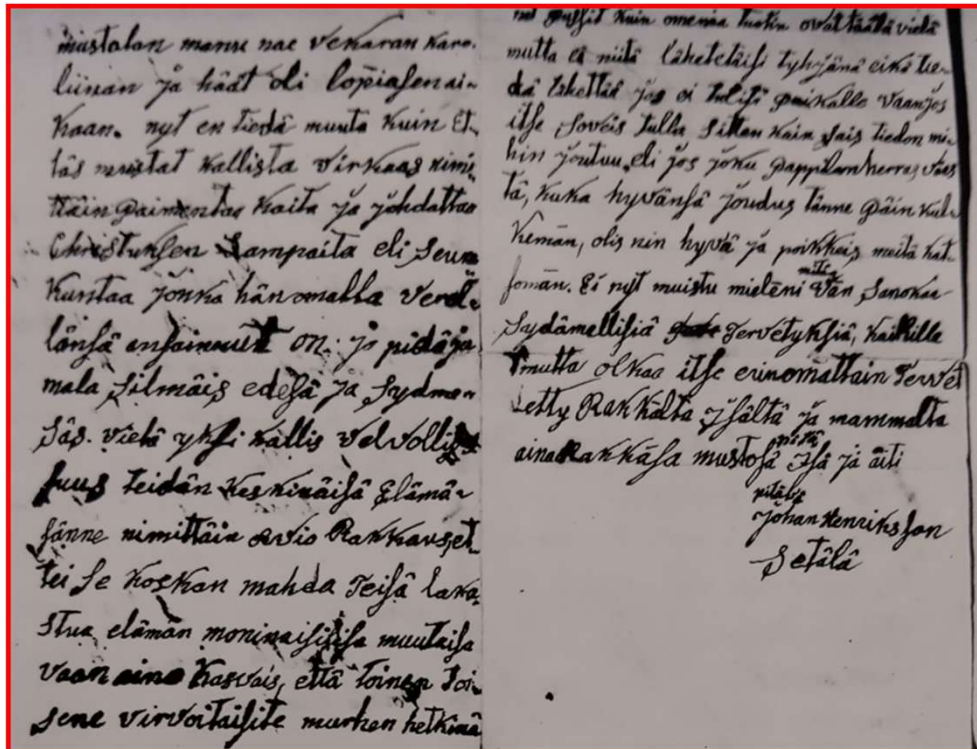 mustalan mannu nae vekaran karo-
liinan ja häät oli lopiaisen ai-
kaan. nyt en tiedä muuta kuin et-
täs muistat kallista virkaas nimi-
ttäin paimentaa kaita ja johdattaa
Christuksen Lampaita eli seura
kuntaa jonka hän omalla verel-
länsä ansainnut on. jo pidä ja
mala silmäis edesä ja sydme-
säs. vielä yksi kallis velvolli-
suus teidän keskinäisä Elämä-
sänne nimittäin avio Rakkaus, et-
tei se koskan mahda Teisä laka-
stua elämän moninaisisisa muutaisa
vaan aina kasvais, että toinen toi-
sene virvoitaisite murhen hetkinä
pussit kuin omenaa tuokin ovat täälä vielä
mutta ei niitä lähetetäisi tyhjänä eikä tie-
dä lähettää jos ei tulisi paikalle vaan jos
itse soveis tulla sitten kain sais tiedon mi-
hin joutuu. eli jos joku pappilan herras väes
tä, kuka hyvänsä joudus tänne päin kul-
keman, olis nin hyvä ja poikkeis meitä kat-
soman. Ei nyt muistu mieleni mitä van sanokaa
Sydämellisiä Tervetyksiä, kaikille
mutta olkaa itse erinomattain Tervet
etty Rakkalta isältä ja mammalta
aina Rakkasa mustosa pitä isä ja äiti
pitäis
Johan Henriksson
Setälä